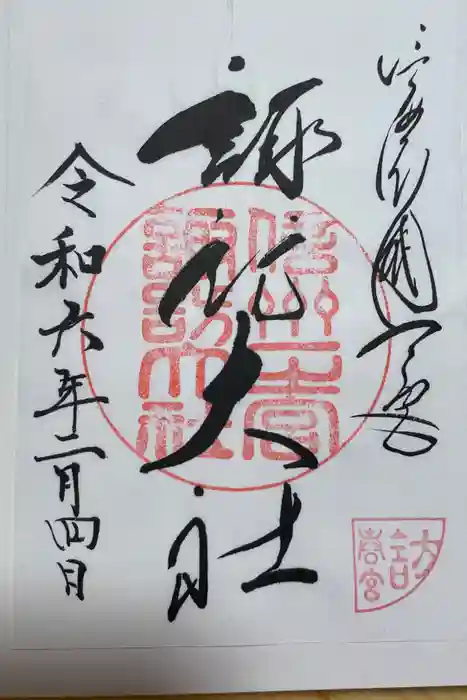 信濃國一之宮
諏訪大社
令和六年二月四日
信州一宮
諏訪大社
諏訪
春宮